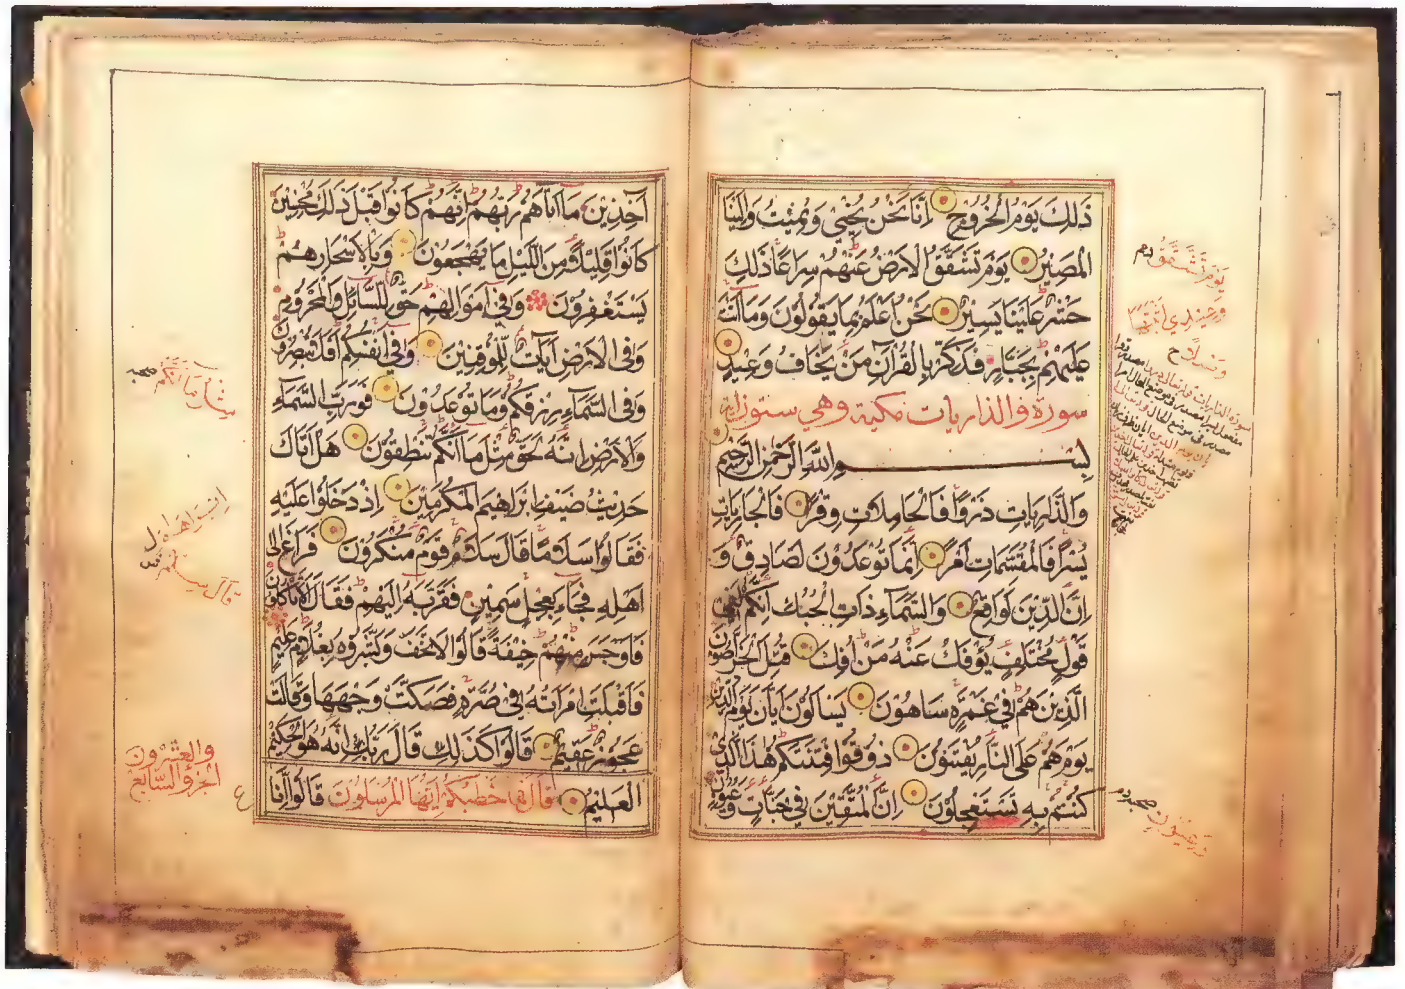 ذَلِكَ يَوْمُ الْخُرُوجِ اِنَّا نَحْنُ نُحْيِي وَنُمِيْتُ وَاِلَيْنَا
الْمَصِيْرُ يَوْمَ تَشَقَّقُ الْاَرْضُ عَنْهُمْ سِرَاعًا ذَلِكَ
حَشْرٌ عَلَيْنَا يَسِيْرٌ نَحْنُ اَعْلَمُ بِمَا يَقُوْلُوْنَ وَمَا اَنْتَ
عَلَيْهِمْ بِجَبَّارٍ فَذَكِّرْ بِالْقُرْآنِ مَنْ يَخَافُ وَعِيْدِ
سورة والذاريات مكية وهي ستون اية
بِسْمِ اللّٰهِ الرَّحْمٰنِ الرَّحِيْمِ
وَالذَّارِيَاتِ ذَرْوًا فَالْحَامِلَاتِ وِقْرًا فَالْجَارِيَاتِ
يُسْرًا فَالْمُقَسِّمَاتِ اَمْرًا اِنَّمَا تُوْعَدُوْنَ لَصَادِقٌ وَ
اِنَّ الدِّيْنَ لَوَاقِعٌ وَالسَّمَاءِ ذَاتِ الْحُبُكِ اِنَّكُمْ لَفِيْ
قَوْلٍ مُخْتَلِفٍ يُؤْفَكُ عَنْهُ مَنْ اُفِكَ قُتِلَ الْخَرَّاصُوْنَ
الَّذِيْنَ هُمْ فِيْ غَمْرَةٍ سَاهُوْنَ يَسْاَلُوْنَ اَيَّانَ يَوْمُ الدِّيْنِ
يَوْمَ هُمْ عَلَى النَّارِ يُفْتَنُوْنَ ذُوْقُوْا فِتْنَتَكُمْ هٰذَا الَّذِيْ
كُنْتُمْ بِهِ تَسْتَعْجِلُوْنَ اِنَّ الْمُتَّقِيْنَ فِيْ جَنَّاتٍ وَعُيُوْنٍ
يَوْمَ تَشَقَّقُ
وَعِيْدِي
وَعُيُوْنٍ
آخِذِيْنَ مَا آتَاهُمْ رَبُّهُمْ اِنَّهُمْ كَانُوْا قَبْلَ ذَلِكَ مُحْسِنِيْنَ
كَانُوْا قَلِيْلًا مِنَ اللَّيْلِ مَا يَهْجَعُوْنَ وَبِالْاَسْحَارِ هُمْ
يَسْتَغْفِرُوْنَ وَفِيْ اَمْوَالِهِمْ حَقٌّ لِلسَّائِلِ وَالْمَحْرُوْمِ
وَفِى الْاَرْضِ آيَاتٌ لِلْمُوْقِنِيْنَ وَفِيْ اَنْفُسِكُمْ اَفَلَا تُبْصِرُوْنَ
وَفِى السَّمَاءِ رِزْقُكُمْ وَمَا تُوْعَدُوْنَ فَوَرَبِّ السَّمَاءِ
وَالْاَرْضِ اِنَّهُ لَحَقٌّ مِثْلَ مَا اَنَّكُمْ تَنْطِقُوْنَ هَلْ اَتَاكَ
حَدِيْثُ ضَيْفِ اِبْرَاهِيْمَ الْمُكْرَمِيْنَ اِذْ دَخَلُوْا عَلَيْهِ
فَقَالُوْا سَلَامًا قَالَ سَلَامٌ قَوْمٌ مُنْكَرُوْنَ فَرَاغَ اِلَى
اَهْلِهِ فَجَاءَ بِعِجْلٍ سَمِيْنٍ فَقَرَّبَهُ اِلَيْهِمْ فَقَالَ اَلَا تَاْكُلُوْنَ
فَاَوْجَسَ مِنْهُمْ خِيْفَةً قَالُوْا لَا تَخَفْ وَبَشَّرُوْهُ بِغُلَامٍ عَلِيْمٍ
فَاَقْبَلَتِ امْرَاَتُهُ فِيْ صَرَّةٍ فَصَكَّتْ وَجْهَهَا وَقَالَتْ
عَجُوْزٌ عَقِيْمٌ قَالُوْا كَذَلِكِ قَالَ رَبُّكِ اِنَّهُ هُوَ الْحَكِيْمُ
الْعَلِيْمُ قَالَ فَمَا خَطْبُكُمْ اَيُّهَا الْمُرْسَلُوْنَ قَالُوْا اِنَّا
والعشرون
الجزو السابع
ع